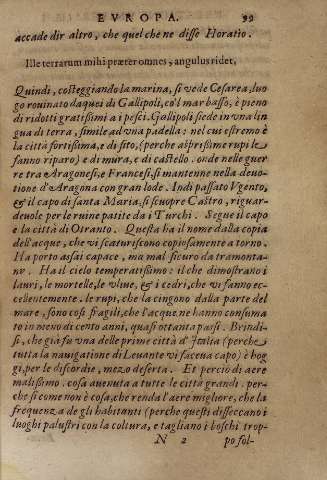 EVROPA. 99
accade dir altro, che quel che ne disse Horatio.
Ille terrarum mihi præter omnes, angulus ridet,
Quindi, costeggiando la marina, si vede Cesarea, luo
go rouinato da quei di Gallipoli, co'l mar basso, è pieno
di ridotti gratissimi a i pesci. Gallipoli siede in vna lin
gua di terra, simile ad vna padella: nel cui estremo è
la città fortissima, e di sito, (perche asprissime rupi le
fanno riparo) e di mura, e di castello. onde nelle guer
re tra Aragonesi, e Francesi, si mantenne nella deuo-
tione d'Aragona con gran lode. Indi passato Vgento,
& il capo di santa Maria, si scuopre Castro, riguar-
deuole per le ruine patite da i Turchi. Segue il capo
e la città di Otranto. Questa ha il nome dalla copia
dell'acque, che vi scaturiscono copiosamente a torno.
Ha porto assai capace, ma mal sicuro da tramonta-
na. Ha il cielo temperatissimo: il che dimostrano i
lauri, le mortelle, le vliue, & i cedri, che vi fanno ec-
cellentemente. le rupi, che la cingono dalla parte del
mare, sono così fragili, che l'acque ne hanno consuma
to in meno di cento anni, quasi ottanta passi. Brindi-
si, che già fu vna delle prime città d'Italia (perche
tutta la nauigatione di Leuante vi faceua capo) è hog
gi, per le discordie, mezo deserta. Et perciò di aere
malissimo. cosa auenuta a tutte le città grandi. per-
che si come non è cosa, che renda l'aere migliore, che la
frequenza de gli habitanti (perche questi disseccano i
luoghi palustri con la coltura, e tagliano i boschi trop-
N 2 po fol-